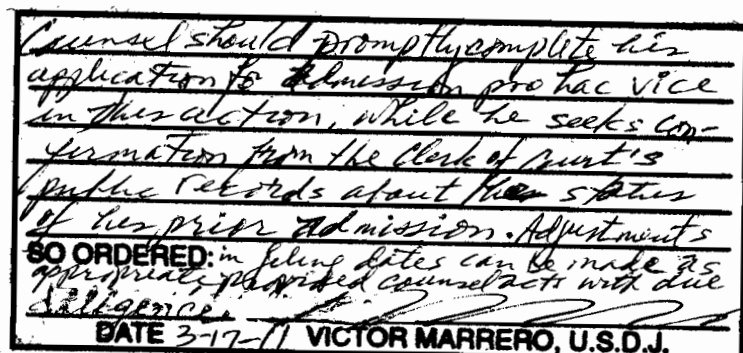 Counsel should promptly complete his
application for admission pro hac vice
in this action, while he seeks con-
firmation from the Clerk of Court's
public records about the status
of his prior admission. Adjustments
SO ORDERED: in filing dates can be made as
appropriate, provided counsel acts with due
diligence.
DATE 3-17-11 VICTOR MARRERO, U.S.D.J.